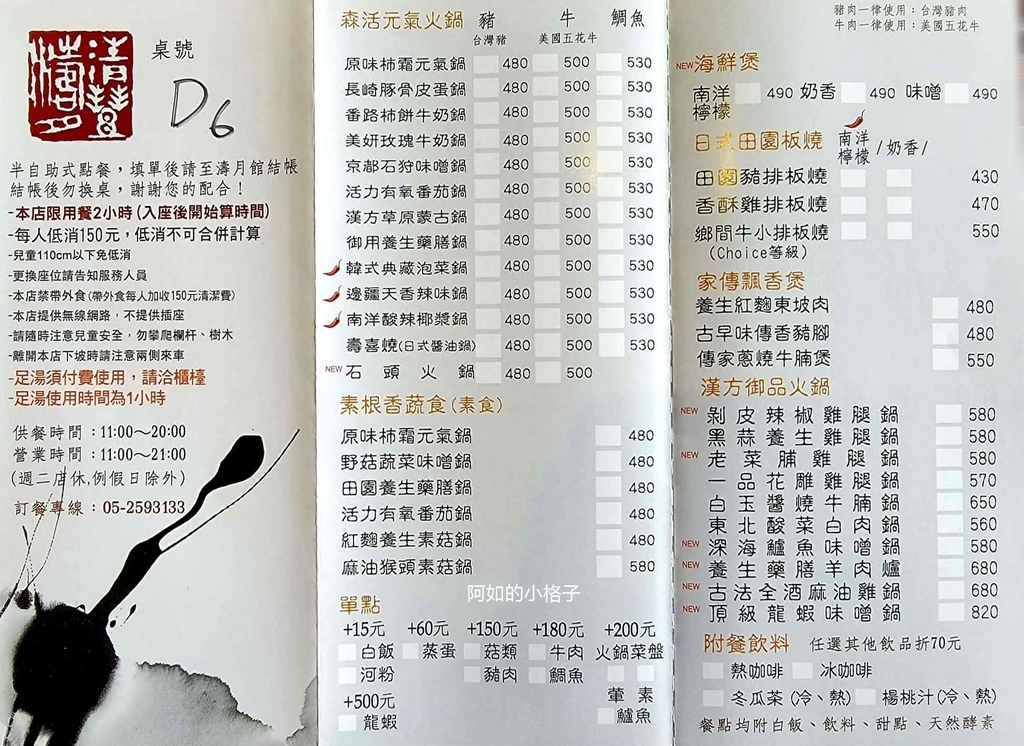 清豐濤月
桌號
D6
半自助式點餐，填單後請至濤月館結帳
結帳後勿換桌，謝謝您的配合！
-本店限用餐2小時(入座後開始算時間)
-每人低消150元，低消不可合併計算
-兒童110cm以下免低消
-更換座位請告知服務人員
-本店禁帶外食(帶外食每人加收150元清潔費)
-本店提供無線網路，不提供插座
-請隨時注意兒童安全，勿攀爬欄杆、樹木
-離開本店下坡時請注意兩側來車
-足湯須付費使用，請洽櫃檯
-足湯使用時間為1小時
供餐時間：11:00～20:00
營業時間：11:00～21:00
(週二店休,例假日除外)
訂餐專線：05-2593133
森活元氣火鍋 豬 牛 鯛魚
台灣豬 美國五花牛
原味柿霜元氣鍋 480 500 530
長崎豚骨皮蛋鍋 480 500 530
番路柿餅牛奶鍋 480 500 530
美妍玫瑰牛奶鍋 480 500 530
京都石狩味噌鍋 480 500 530
活力有氧番茄鍋 480 500 530
漢方草原蒙古鍋 480 500 530
御用養生藥膳鍋 480 500 530
韓式典藏泡菜鍋 480 500 530
邊疆天香辣味鍋 480 500 530
南洋酸辣椰漿鍋 480 500 530
壽喜燒(日式醬油鍋) 480 500 530
NEW 石頭火鍋 480 500
素根香蔬食(素食)
原味柿霜元氣鍋 480
野菇蔬菜味噌鍋 480
田園養生藥膳鍋 480
活力有氧番茄鍋 480
紅麴養生素菇鍋 480
麻油猴頭素菇鍋 580
阿如的小格子
單點
+15元 +60元 +150元 +180元 +200元
白飯 蒸蛋 菇類 牛肉 火鍋菜盤
河粉 豬肉 鯛魚 葷 素
+500元
龍蝦 鱸魚
豬肉一律使用：台灣豬肉
牛肉一律使用：美國五花牛
NEW 海鮮煲
南洋檸檬 490 奶香 490 味噌 490
日式田園板燒 南洋檸檬/奶香/
田園豬排板燒 430
香酥雞排板燒 470
鄉間牛小排板燒 550
(Choice等級)
家傳飄香煲
養生紅麴東坡肉 480
古早味傳香豬腳 480
傳家蔥燒牛腩煲 550
漢方御品火鍋
NEW 剝皮辣椒雞腿鍋 580
黑蒜養生雞腿鍋 580
NEW 老菜脯雞腿鍋 580
一品花雕雞腿鍋 570
白玉醬燒牛腩鍋 650
東北酸菜白肉鍋 560
NEW 深海鱸魚味噌鍋 580
NEW 養生藥膳羊肉爐 680
NEW 古法全酒麻油雞鍋 680
NEW 頂級龍蝦味噌鍋 820
附餐飲料 任選其他飲品折70元
熱咖啡 冰咖啡
冬瓜茶(冷、熱) 楊桃汁(冷、熱)
餐點均附白飯、飲料、甜點、天然酵素